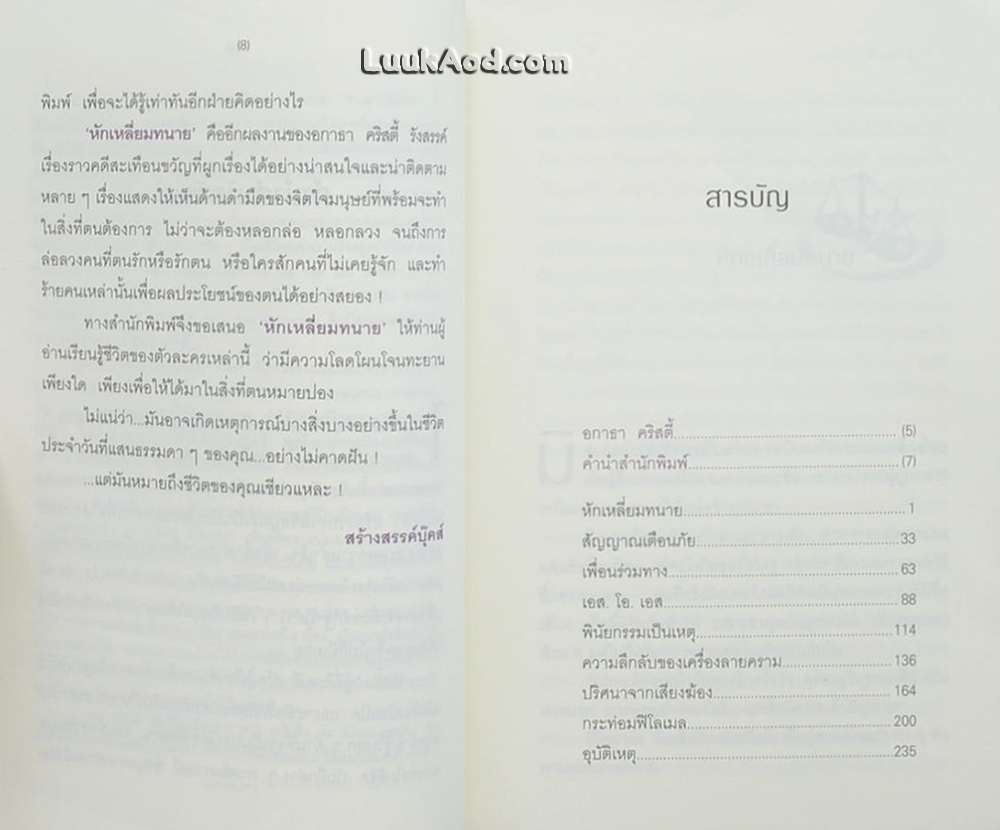 (8)
LuukAod.com
พิมพ์ เพื่อจะได้รู้เท่าทันอีกฝ่ายคิดอย่างไร
'หักเหลี่ยมทนาย' คืออีกผลงานของอกาธา คริสตี้ รังสรรค์
เรื่องราวคดีสะเทือนขวัญที่ผูกเรื่องได้อย่างน่าสนใจและน่าติดตาม
หลาย ๆ เรื่องแสดงให้เห็นด้านดำมืดของจิตใจมนุษย์ที่พร้อมจะทำ
ในสิ่งที่ตนต้องการ ไม่ว่าจะต้องหลอกล่อ หลอกลวง จนถึงการ
ล่อลวงคนที่ตนรักหรือรักตน หรือใครสักคนที่ไม่เคยรู้จัก และทำ
ร้ายคนเหล่านั้นเพื่อผลประโยชน์ของตนได้อย่างสยอง !
ทางสำนักพิมพ์จึงขอเสนอ 'หักเหลี่ยมทนาย' ให้ท่านผู้
อ่านเรียนรู้ชีวิตของตัวละครเหล่านี้ ว่ามีความโลดโผนโจนทะยาน
เพียงใด เพียงเพื่อให้ได้มาในสิ่งที่ตนหมายปอง
ไม่แน่ว่า...มันอาจเกิดเหตุการณ์บางสิ่งบางอย่างขึ้นในชีวิต
ประจำวันที่แสนธรรมดา ๆ ของคุณ...อย่างไม่คาดฝัน !
...แต่มันหมายถึงชีวิตของคุณเชียวแหละ !
สร้างสรรค์บุ๊คส์
สารบัญ
อกาธา คริสตี้ (5)
คำนำสำนักพิมพ์ (7)
หักเหลี่ยมทนาย 1
สัญญาณเตือนภัย 33
เพื่อนร่วมทาง 63
เอส. โอ. เอส 88
พินัยกรรมเป็นเหตุ 114
ความลึกลับของเครื่องลายคราม 136
ปริศนาจากเสียงฆ้อง 164
กระท่อมฟิโลเมล 200
อุบัติเหตุ 235